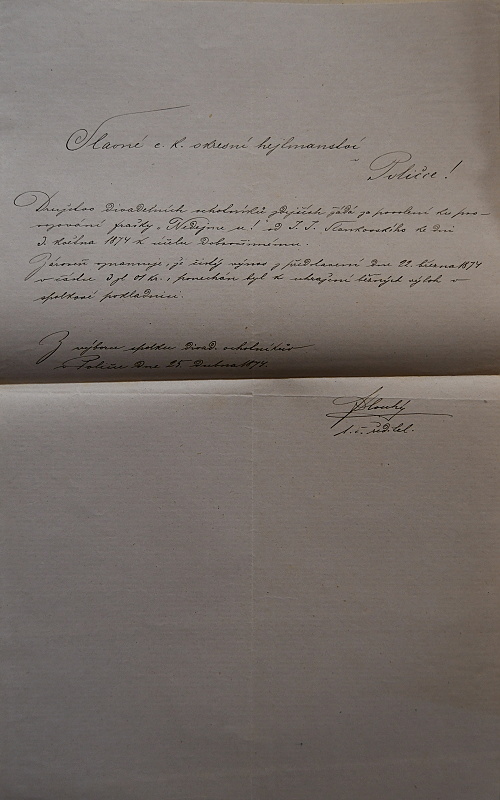 Slavné c. k. okresní hejtmanství
v Poličce!
Družstvo divadelních ochotníků zdejších žádá za povolení ku pro-
vozování frašky „Nedejme se!" od J. J. Stankovského ke dni
3. května 1874 k účelu dobročinnému.
Zároveň oznamuje, že čistý výnos z představení dne 22. března 1874
v částce 3 zl 01 kr., ponechán byl k uhražení běžných výloh v
spolkové pokladnici.
Z výboru spolku divad. ochotníků
v Poličce dne 25. dubna 1874.
Dlouhý
t. č. ředitel.